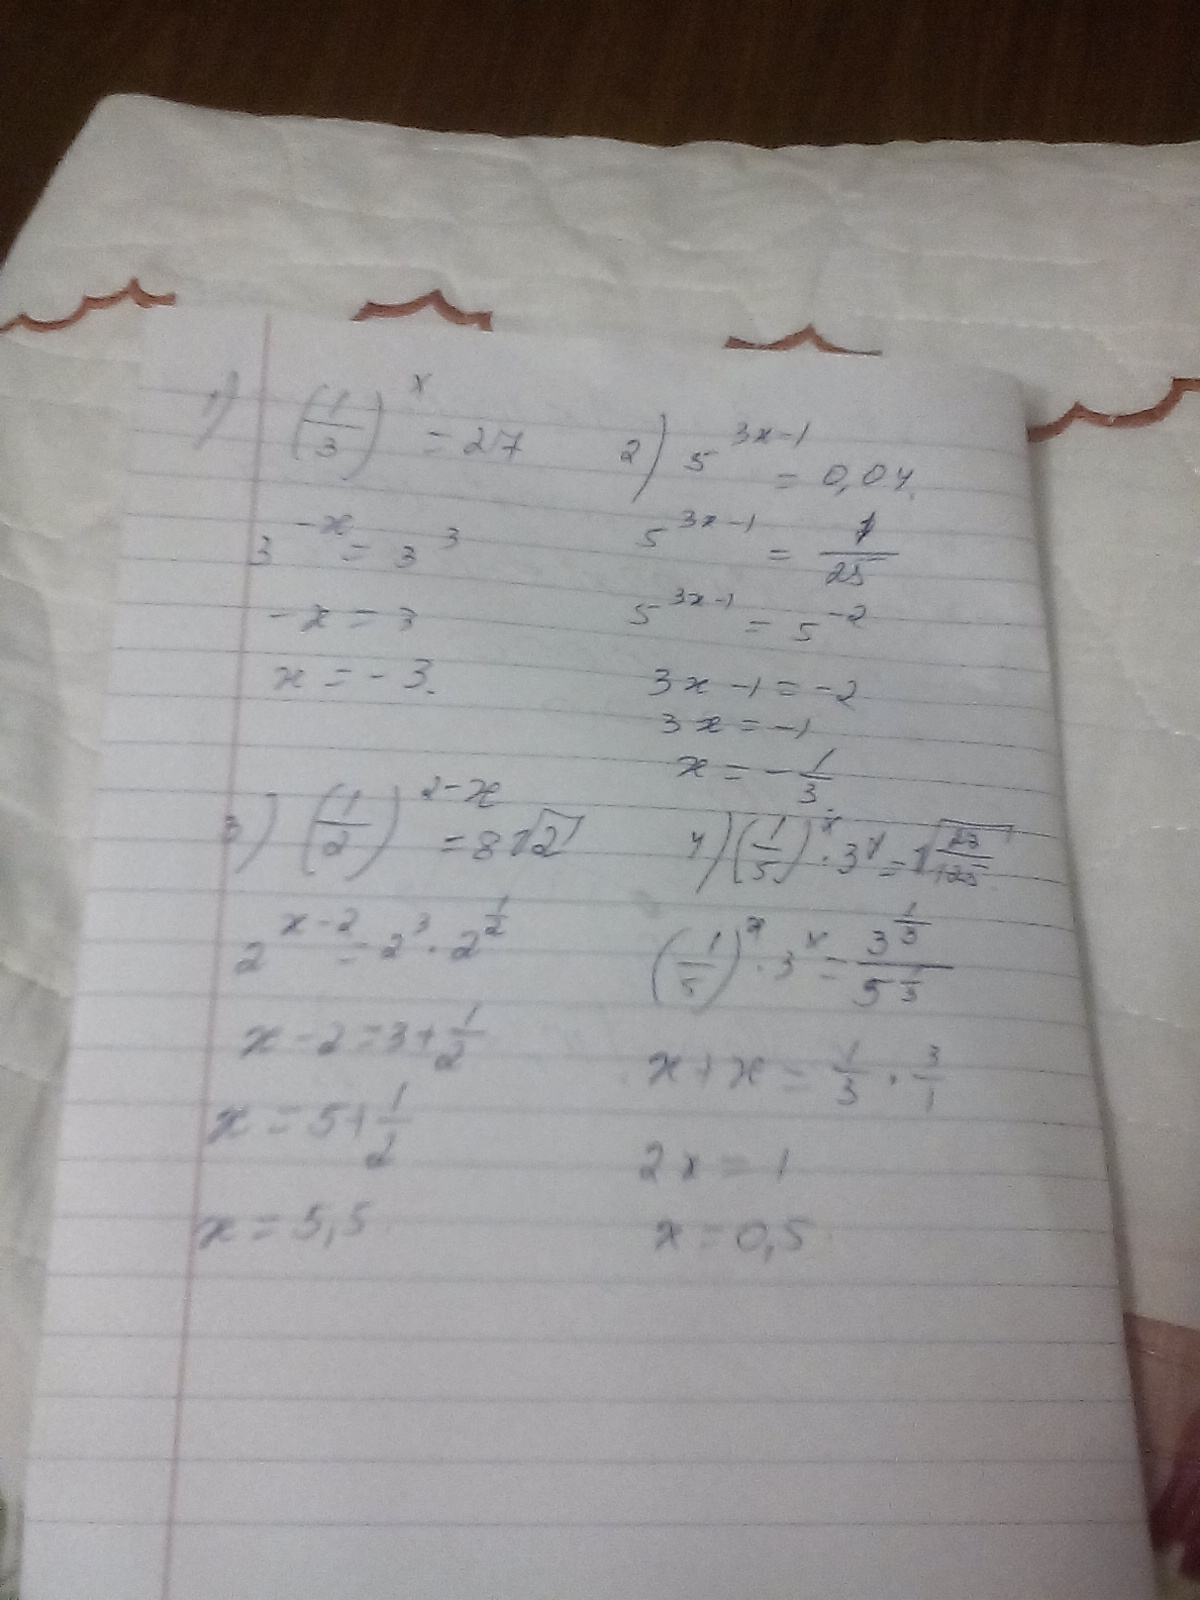 1) (1/3)^x = 27
3^-x = 3^3
-x = 3
x = -3.
2) 5^3x-1 = 0,04.
5^3x-1 = 1/25
5^3x-1 = 5^-2
3x-1 = -2
3x = -1
x = -1/3.
3) (1/2)^2-x = 8√2
2^x-2 = 2^3 · 2^1/2
x-2 = 3+1/2
x = 5+1/2
x = 5,5
4) (1/5)^x · 3^x =
(1/5)^x · 3^x = 3^1/3 / 5^1/3
x+x = 1/3 · 3/1
2x = 1
x = 0,5